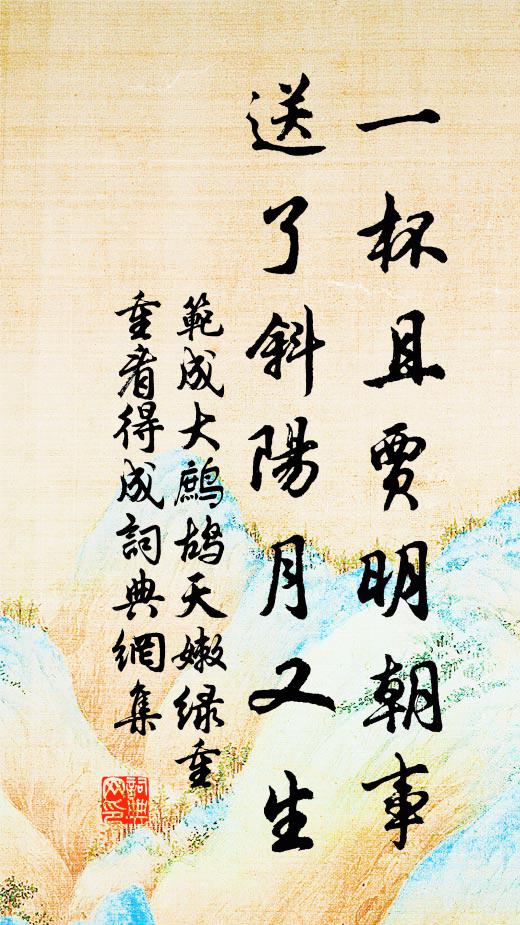 一杯且賈明朝事
送了斜陽月又生
範成大鷓鴣天嫩绿重
重看得成詞典網集
詞典網印